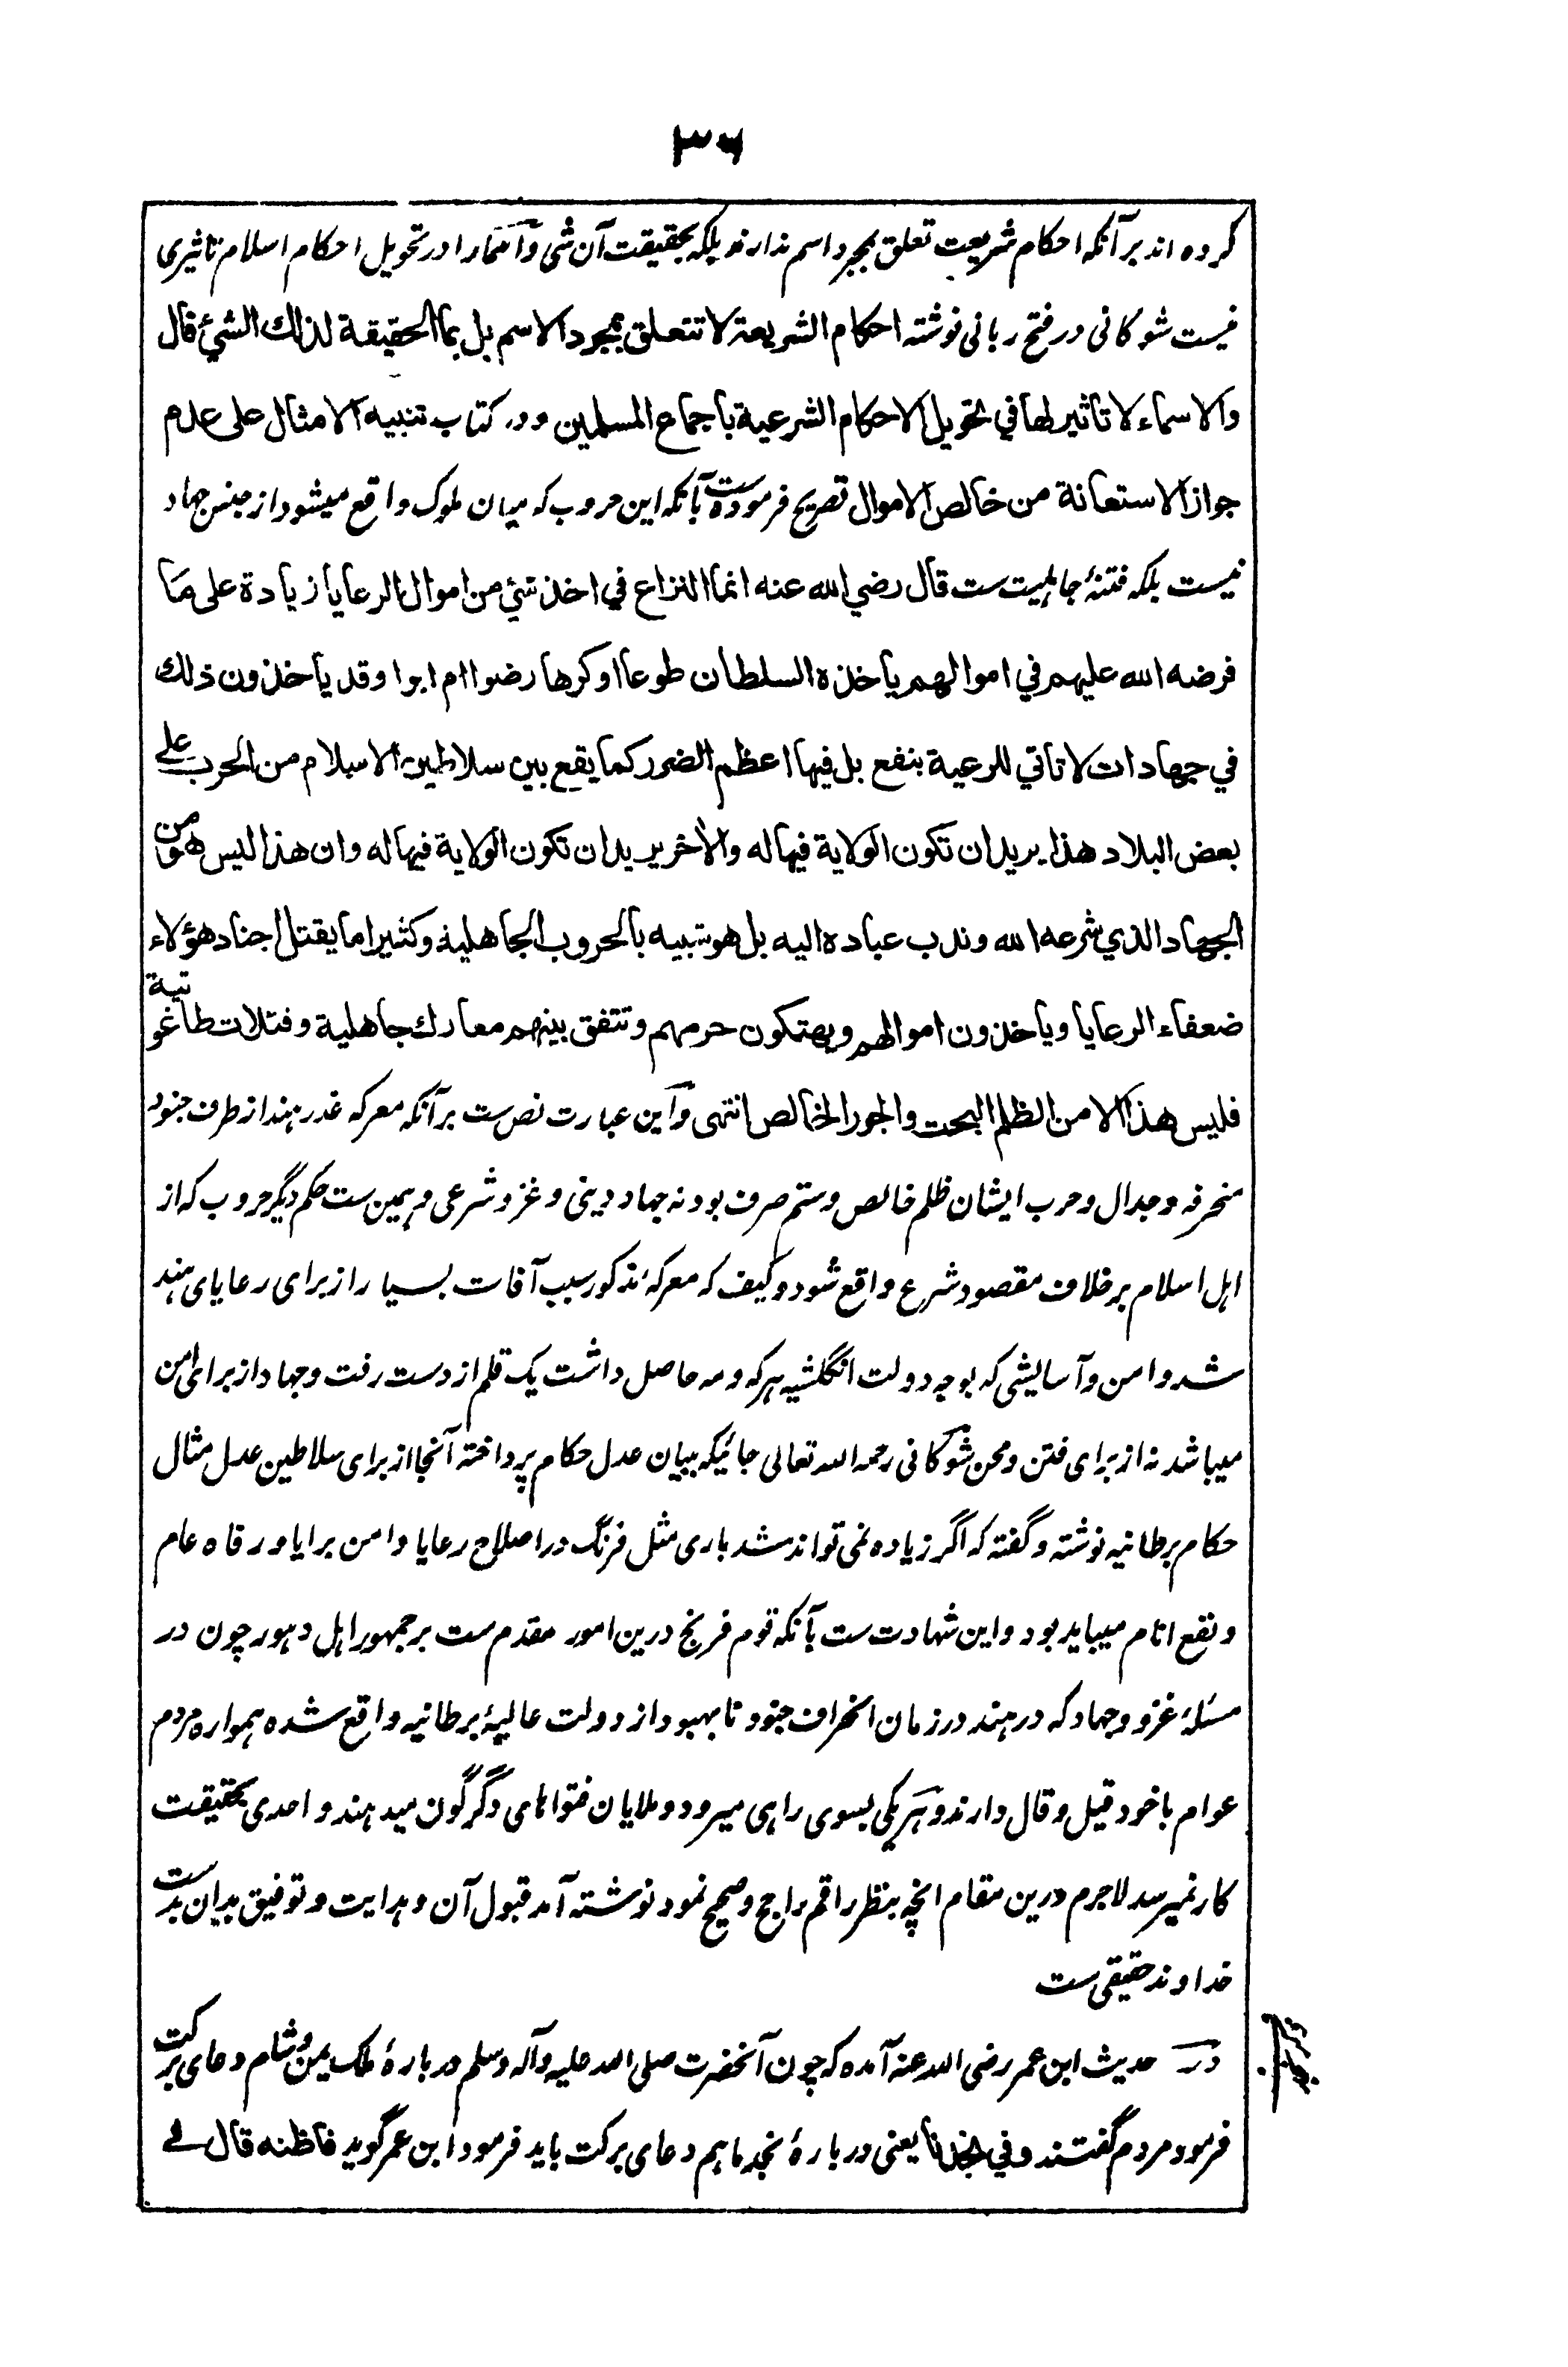 ۳۶
کرده اند بر آنکه احکام شریعت تعلق بمجرد اسم ندارند بلکه بحقیقت آن شی و اسما را در تحویل احکام اسلام تاثیری
نیست شوکانی در فتح ربانی نوشته احکام الشریعة لا تتعلق بمجرد الاسم بل بما الحقیقة لذلك الشئ قال
والاسماء لا تاثیر لها في تحویل الاحکام الشرعیة باجماع المسلمین و در کتاب تنبیه الامثال علی عدم
جواز الاستعانة من خالص الاموال تصریح فرموده ست بآنکه این حروب که میان ملوک واقع میشود از جنس جهاد
نیست بلکه فتنۂ جاهلیت ست قال رضي الله عنه انما النزاع في اخذ شئ من اموال الرعایا زیادة علی ما
فرضه الله علیهم في اموالهم یاخذه السلطان طوعا او کرها رضوا ام ابوا وقد یاخذون ذلك
في جهادات لا تاتي للرعیة بنفع بل فیها اعظم الضرر کما یقع بین سلاطین الاسلام من الحرب علے
بعض البلاد هذا یرید ان تکون الولایة فیها له والاخر یرید ان تکون الولایة فیها له وان هذا لیس هو من
الجهاد الذي شرعه الله وندب عباده الیه بل هو شبیه بالحروب الجاهلیة وکثیرا ما یقتل اجناد هؤلاء
ضعفاء الرعایا ویاخذون اموالهم ویهتکون حرمهم وتتفق بینهم معارك جاهلیة وفتلات طاغوتیة
فلیس هذا الا من الظلم البحت والجور الخالص انتهی و این عبارت نص ست بر آنکه معرکه غدر هند از طرف جنود
منحرفه و جدال و حرب ایشان ظلم خالص و ستم صرف بود نه جهاد دینی و غزو شرعی و همین ست حکم دیگر حروب که از
اهل اسلام بر خلاف مقصود شرع واقع شود و کیف که معرکۂ مذکور سبب آفات بسیار از برای رعایای هند
شد و امن و آسایشی که بوجه دولت انگلشیه هر که و مه حاصل داشت یک قلم از دست رفت و جهاد از برای امن
میباشد نه از برای فتن و محن شوکانی رحمه الله تعالی جائیکه ببیان عدل حکام پرداخته آنجا از برای سلاطین عدل مثال
حکام برطانیه نوشته و گفته که اگر زیاده نمی تواند شد باری مثل فرنگ در اصلاح رعایا و امن برایا و رفاه عام
و نفع انام میباید بود و این شهادت ست بآنکه قوم فرنج درین امور مقدم ست بر جمهور اهل دهور چون در
مسئلۂ غزو و جهاد که در هند در زمان انحراف جنود نابهبود از دولت عالیۂ برطانیه واقع شده همواره مردم
عوام با خود قیل و قال دارند و هر یکی بسوی راهی میرود و ملایان فتواهای دگرگون میدهند و احدی بحقیقت
کار نمیرسد لاجرم درین مقام انچه بنظر راقم راجح و صحیح نمود نوشته آمد قبول آن و هدایت و توفیق بدان بدست
خداوند حقیقی ست
در حدیث ابن عمر رضی الله عنه آمده که چون آنحضرت صلی الله علیه و آله وسلم در بارۂ ملک یمن و شام دعای برکت
فرمود مردم گفتند و في نجدنا یعنی در بارۂ نجد ما هم دعای برکت باید فرمود ابن عمر گوید فاظنه قال فے